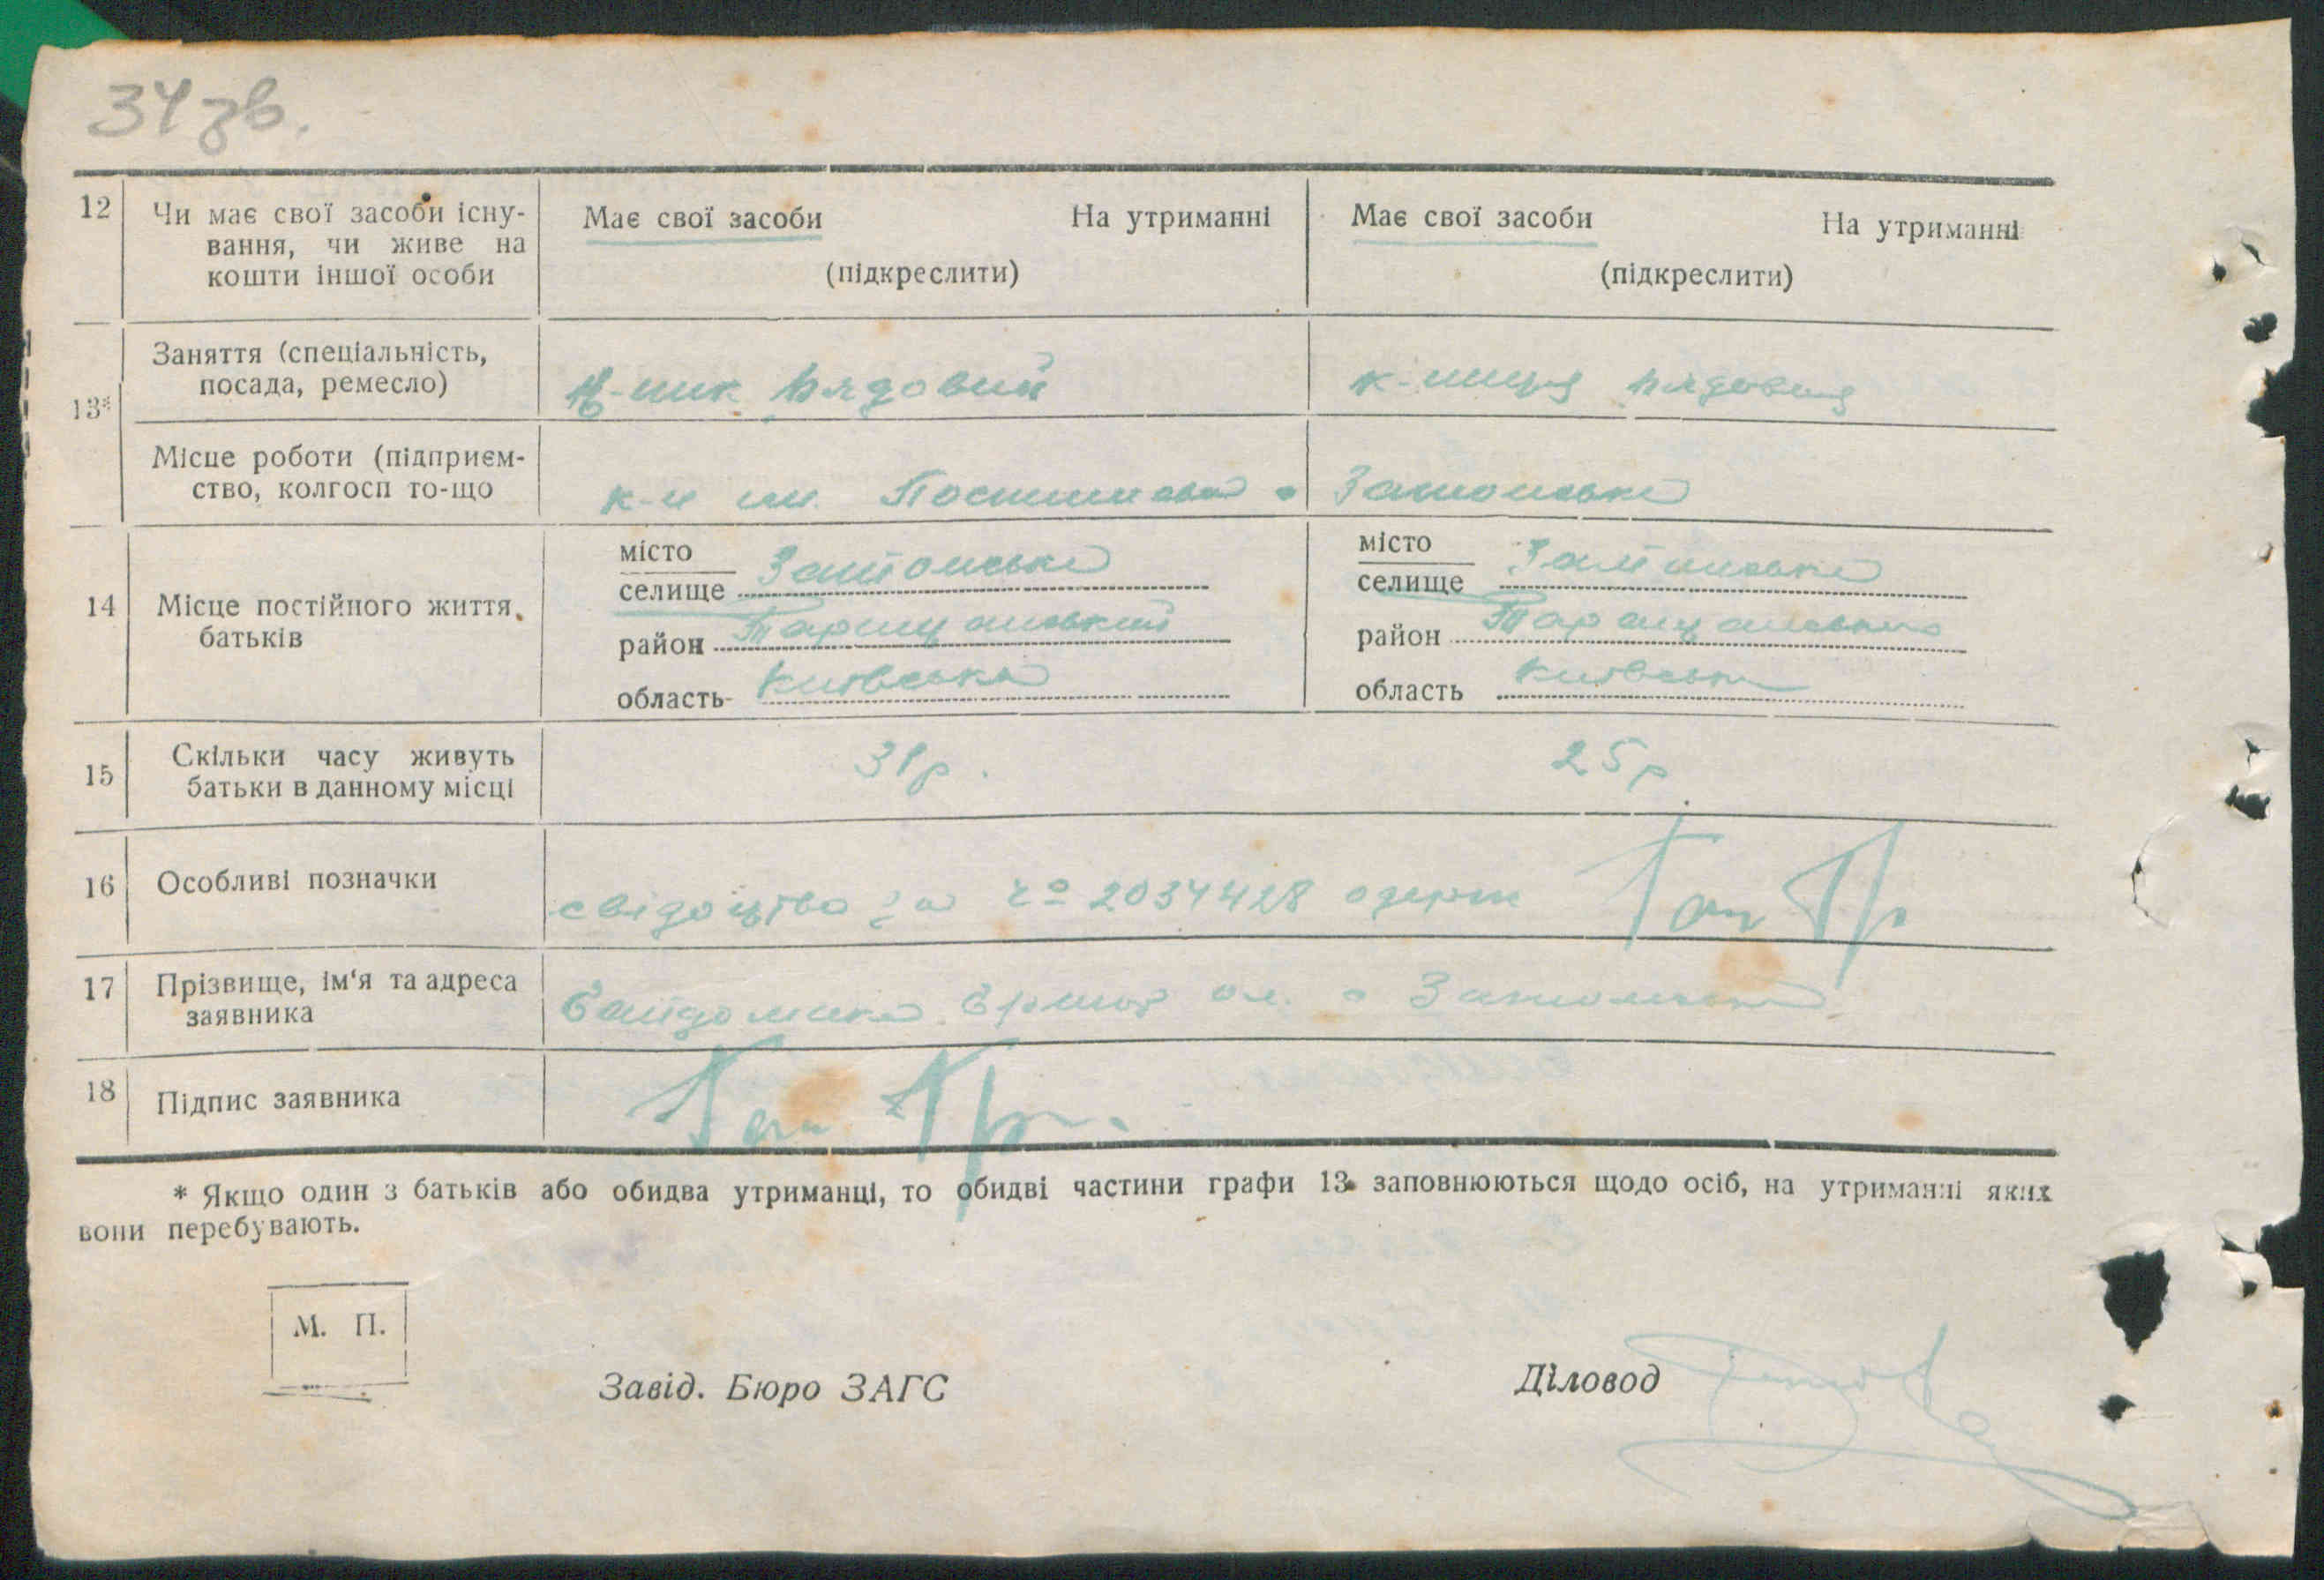 34 зв.
12 Чи має свої засоби існу-
вання, чи живе на
кошти іншої особи
Має свої засоби На утриманні
(підкреслити)
Має свої засоби На утриманні
(підкреслити)
13*
Заняття (спеціальність,
посада, ремесло)
к-ник рядовий
к-ниця рядовиця
Місце роботи (підприєм-
ство, колгосп то-що
к-п ім. Постишева с Затонське
14 Місце постійного життя
батьків
місто
селище Затонське
район Таращанський
область Київська
місто
селище Затонське
район Таращанський
область Київська
15 Скільки часу живуть
батьки в данному місці
31 р.
25 р
16 Особливі позначки
свідоцтво за № 2034428 одерж
17 Прізвище, ім'я та адреса
заявника
с Затонське
18 Підпис заявника
* Якщо один з батьків або обидва утриманці, то обидві частини графи 13 заповнюються щодо осіб, на утриманні яких
вони перебувають.
М. П.
Завід. Бюро ЗАГС
Діловод